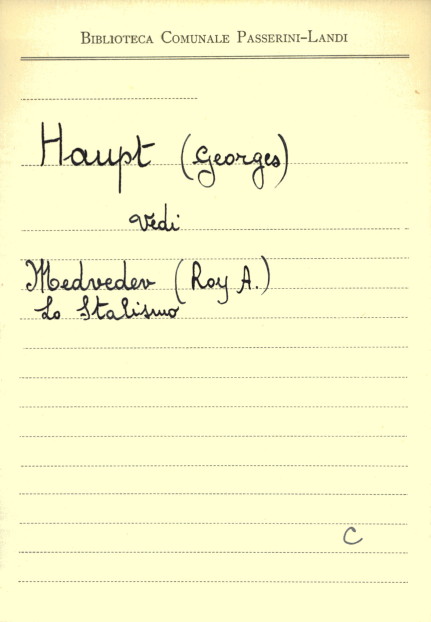 BIBLIOTECA COMUNALE PASSERINI-LANDI
Haupt (Georges)
Vedi
Medvedev (Roy A.)
Lo Stalismo
C